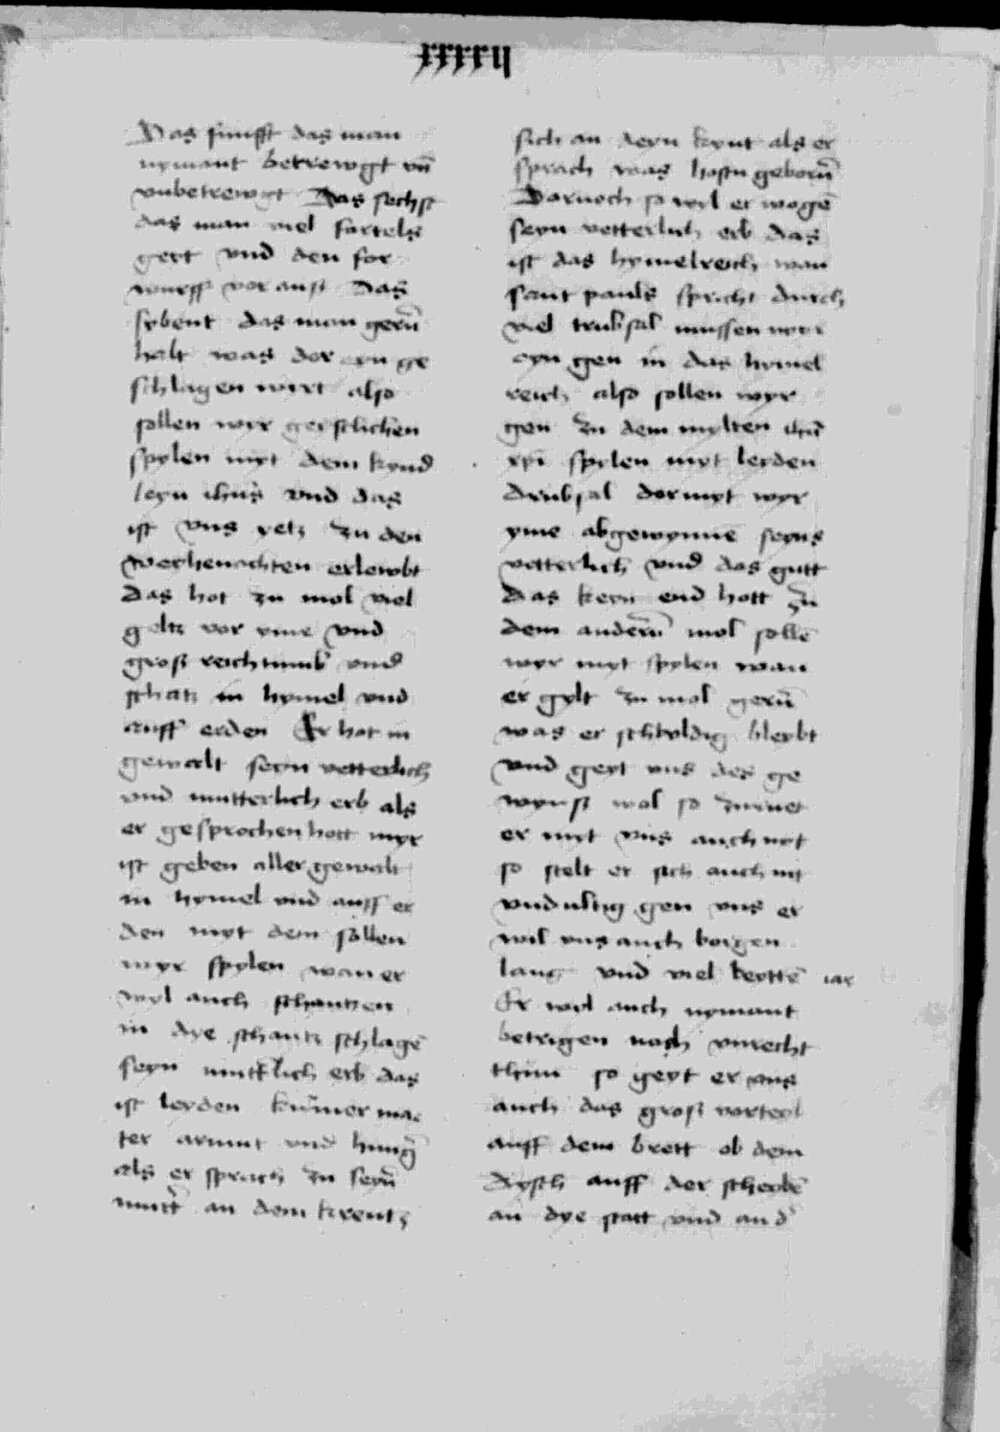 xxxxxij
Das funfft das man
nymant betrewgt vn̄
vnbetrewgt Das sechst
das man viel fortels
geyt vnd den for
wurff vor auß Das
sybent das man gern̄
halt was dor eyn ge
schlagen wirt also
sollen wyr geystlichen
spylen myt dem kynd
leyn ihūs vnd das
ist vns yetz zu den
weyhenachten erlewbt
das hot zu mol viel
geltz vor yme vnd
groß reichtumb vnd
schatz in hymel vnd
auff erden Er hot in
gewalt seyn vetterlich
vnd mutterlich erb als
er gesprochen hott myr
ist geben aller gewalt
in hymel vnd auff er
den myt dem sollen
wyr spylen wan er
wyl auch schantzen
in dye schantz schlagē
seyn mutt̄lich erb das
ist leyden kum̄er mar
ter armut vnd hunḡ
als er sprach zu seyn̄
mutt̄ an dem krewtz
sich an deyn kynt als er
sprach was hostu geborn̄
Dornoch so wyl er wogē
seyn vetterlich erb das
ist das hymelreich wan
sant pauls spricht durch
viel trubsal mussen wyr
eyn gen in das hymel
reich also sollen wyr
gen zu dem mylten ihū
xpi spylen myt leyden
drubsal dormyt wyr
yme abgewynnē seyns
vetterlich vnd das gutt
das keyn end hott zu
dem andern̄ mol sollē
wyr myt spylen wan
er gylt zu mol gern̄
was er schuldig bleybt
vnd geyt vns des ge
wynß wol so zurnet
er myt vns auch nyt
so stelt er sich auch nit
vndultig gen vns er
wil vns auch borgen
lang vnd viel keyttē iar
Er wyl auch nymant
betrigen noch vnrecht
thun so geyt er vns
auch das groß vorteyl
auff dem brett ob dem
dysch auff der scheybē
an dye statt vnd an d̄